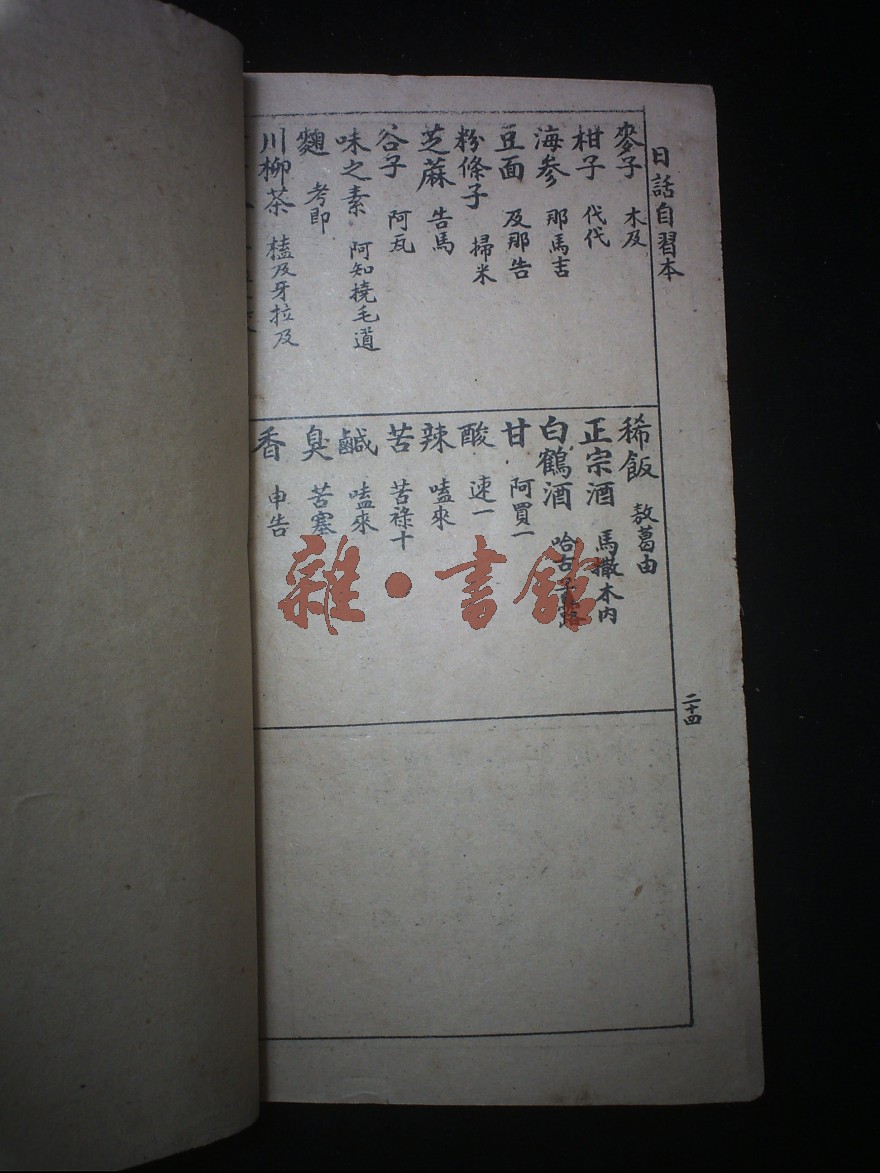 日話自習本
麥子 木及
柑子 代代
海参 那馬吉
豆面 及那告
粉條子 掃米
芝蔴 告馬
谷子 阿瓦
味之素 阿知撓毛道
麯 考即
川柳茶 槿及牙拉及
稀飯 敖葛由
正宗酒 馬撒木内
白鶴酒 哈古
甘 阿買一
酸 速一
辣 嗑來
苦 苦祿十
鹹 嗑來
臭 苦塞
香 申告
二十四
雜·書館